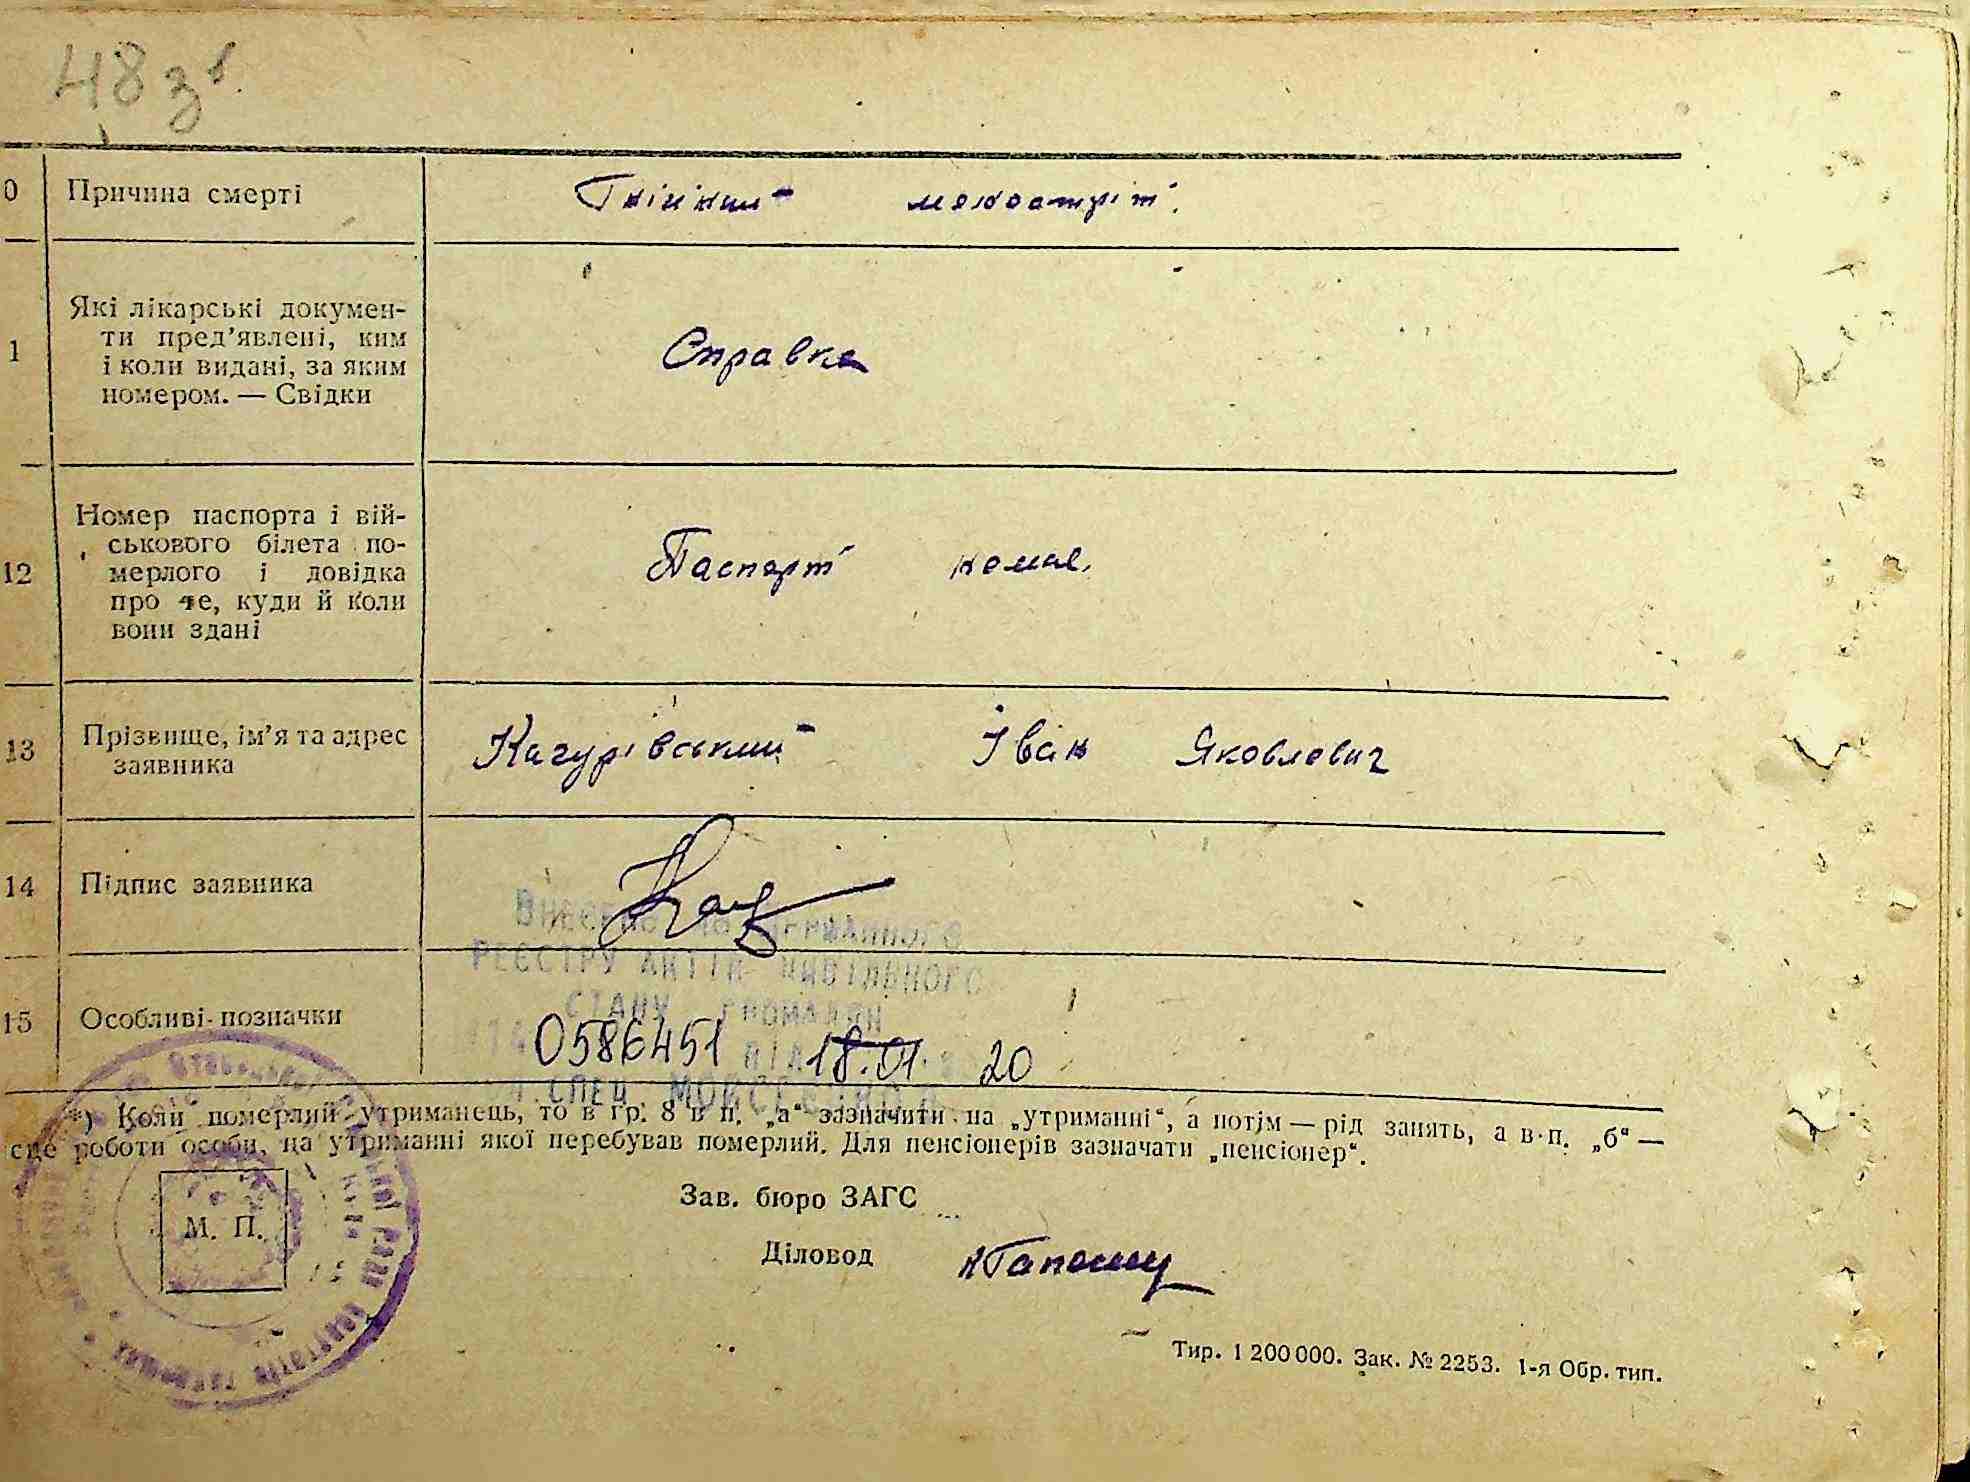 48 зв.
10 Причина смерті Гнійний
Які лікарські докумен-
ти пред'явлені, ким
11 і коли видані, за яким
номером. — Свідки
Справка
Номер паспорта і вій-
ськового білета по-
12 мерлого і довідка
про те, куди й коли
вони здані
Паспорт немає.
13 Прізвище, ім'я та адрес
заявника
Качурівський Іван Яковлевич
14 Підпис заявника
Внесено до Державного
реєстру актів цивільного
стану громадян
15 Особливі позначки
0586451 від 18.01.20
*) Коли померлий утриманець, то в гр. 8 в п. „а“ зазначити на „утриманні“, а потім — рід занять, а в п. „б“ —
сце роботи особи, на утриманні якої перебував померлий. Для пенсіонерів зазначати „пенсіонер“.
Зав. бюро ЗАГС
М. П.
Діловод
Тир. 1 200 000. Зак. № 2253. 1-я Обр. тип.